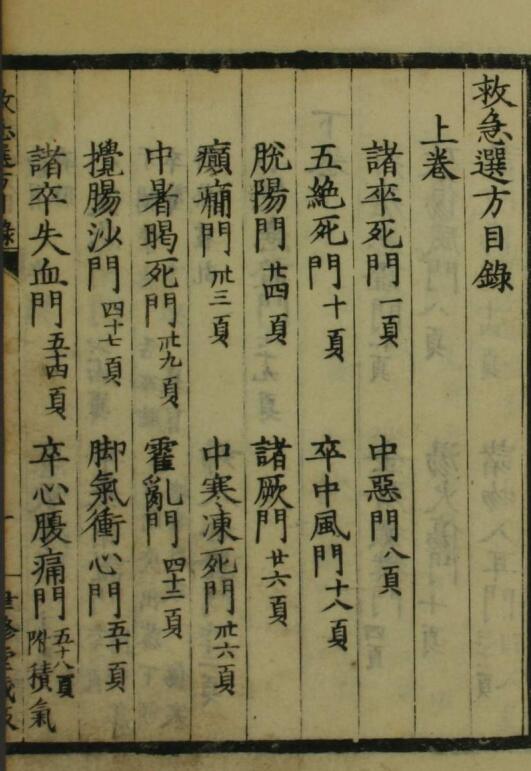 救急選方目錄
上卷
諸卒死門一頁 中惡門八頁
五絶死門十頁 卒中風門十八頁
脫陽門廿四頁 諸厥門廿六頁
癲癇門卅三頁 中寒凍死門卅六頁
中暑暍死門卅九頁 霍亂門四十二頁
攪腸沙門四十七頁 脚氣衝心門五十頁
諸卒失血門五十四頁 卒心腹痛門五十八頁附積氣